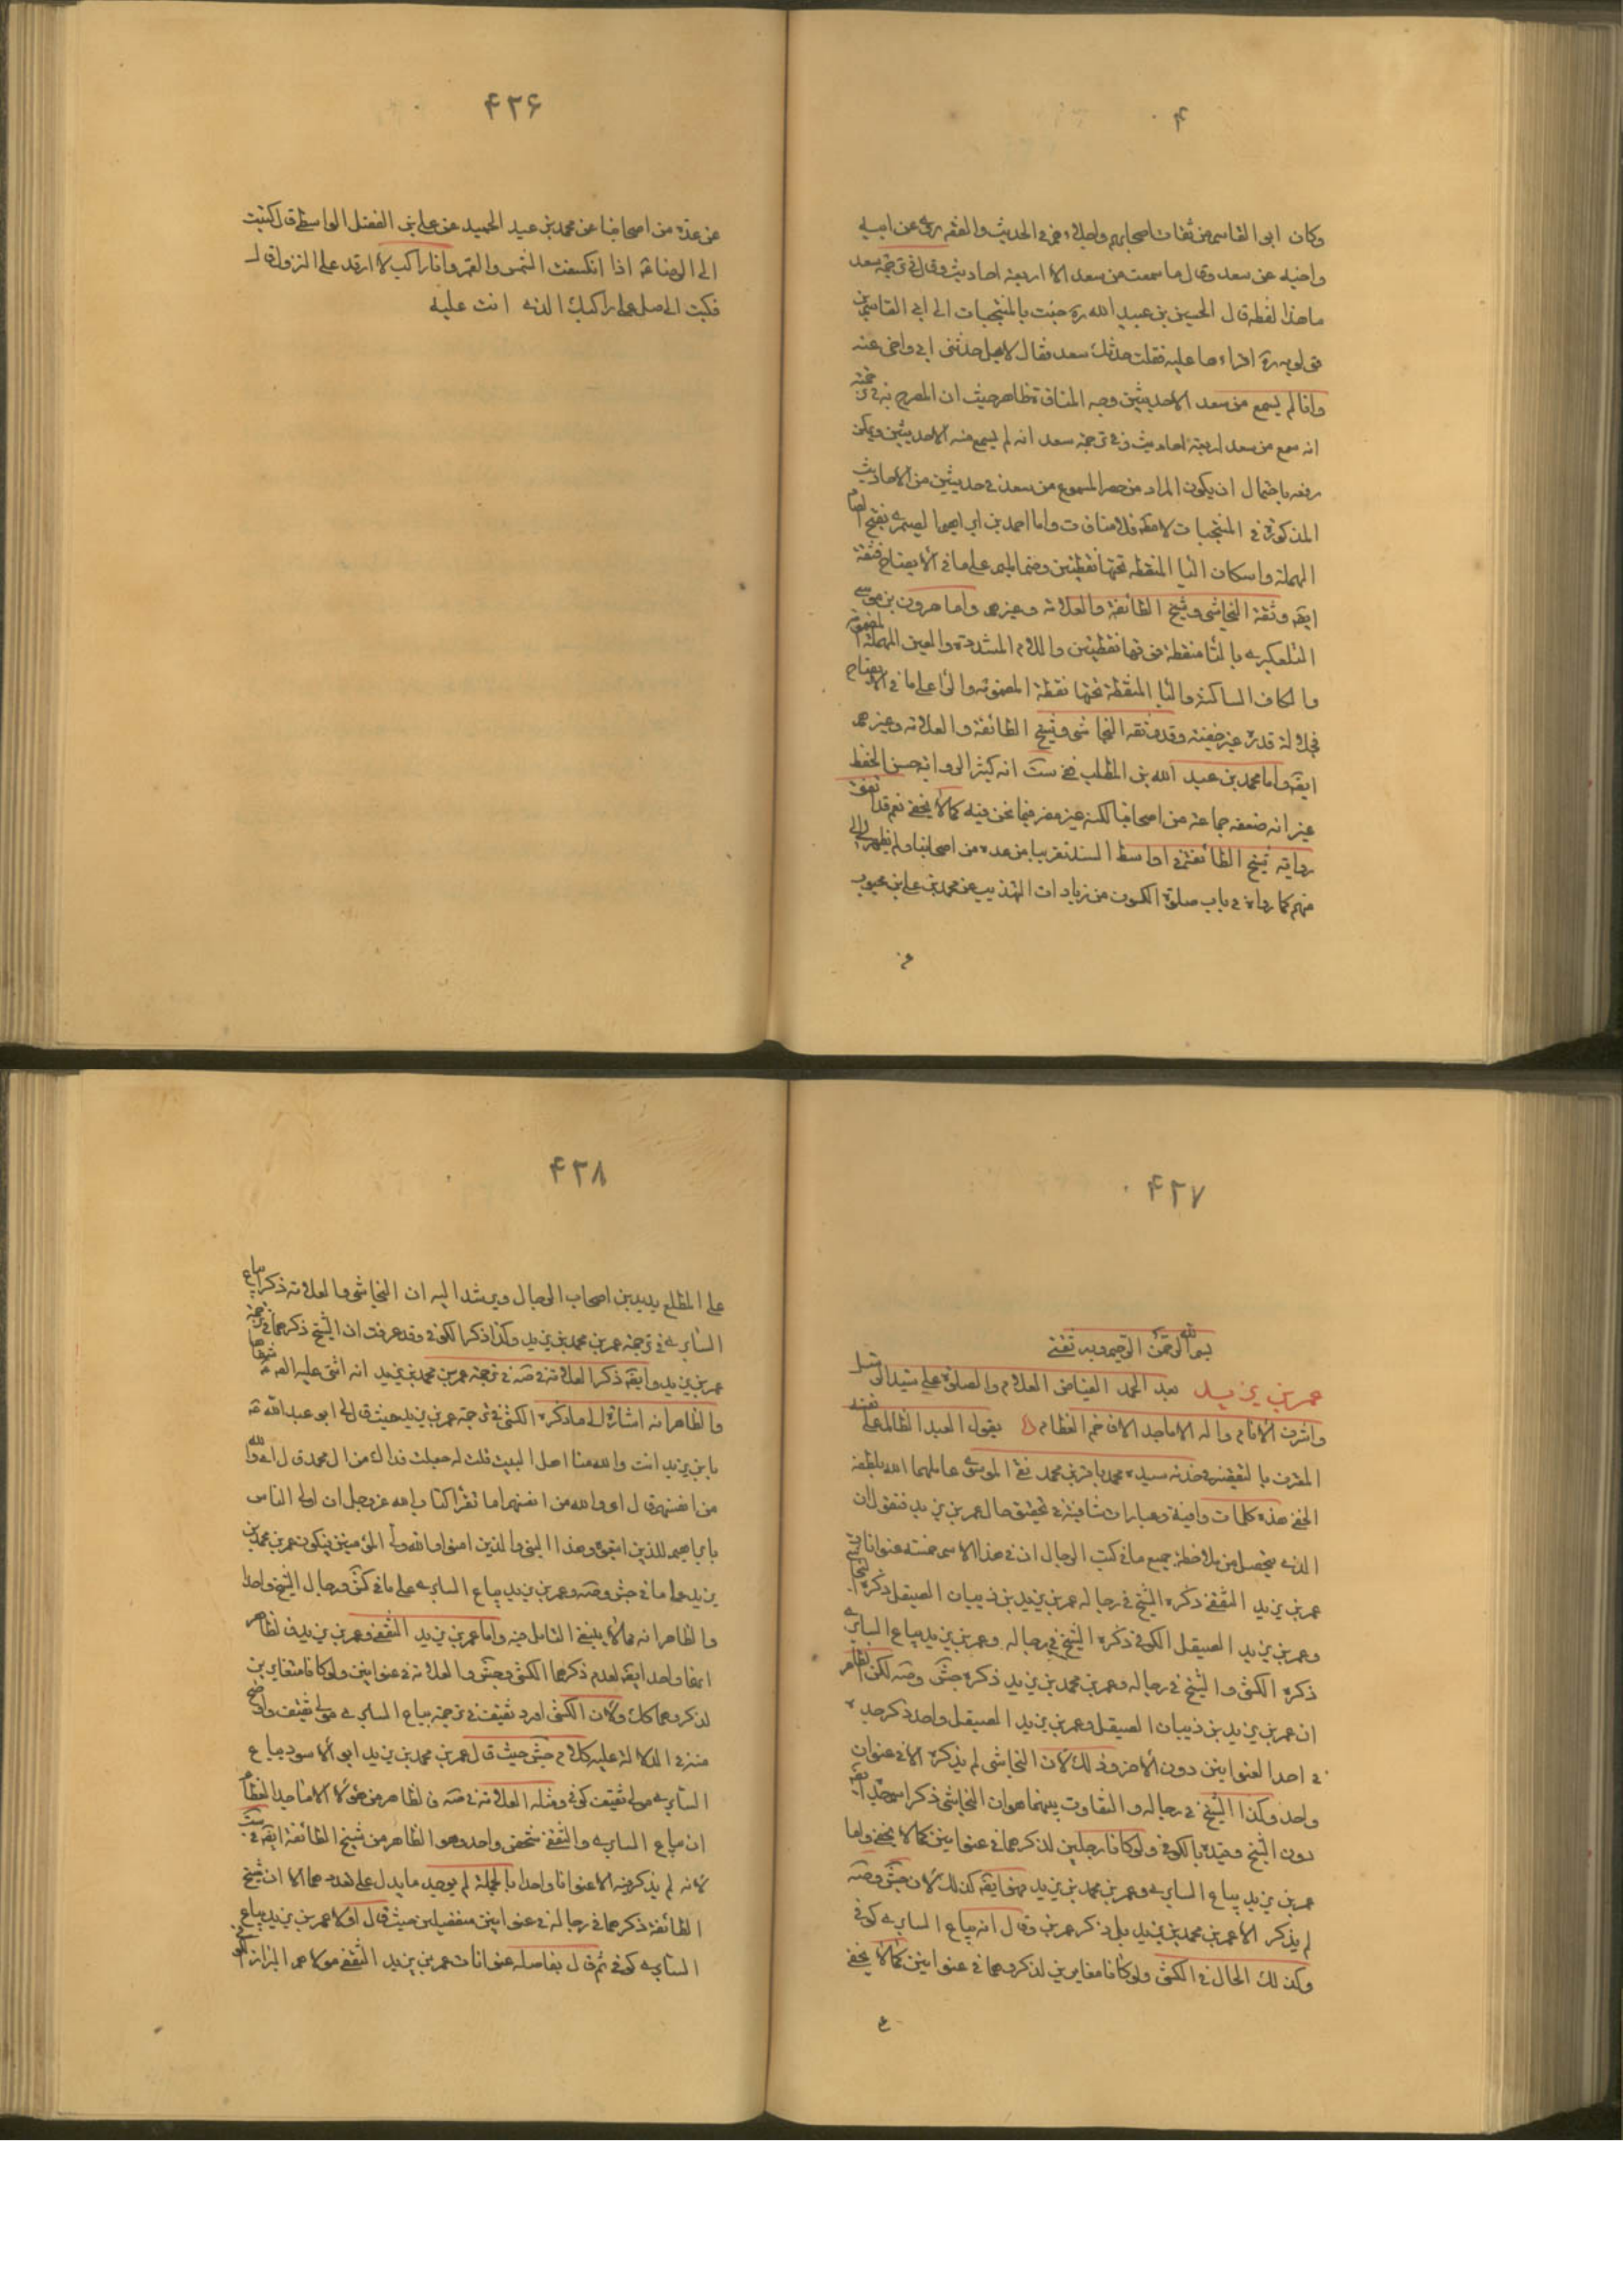 ۴
وكان ابو القاسم من ثقات اصحابهم واجلائهم فى الحديث والفقه روى عن ابيه
واخيه عن سعد وقال ما سمعت من سعد الا اربعة احاديث وقال فى ترجمة سعد
ما هذا لفظه قال الحسين بن عبيد الله ره جئت بالمنتخبات الى ابى القاسم بن
قولويه ره اقراءها عليه فقلت حدثك سعد فقال لا بل حدثنى ابى واخى عنه
وانا لم يسمع من سعد الا حديثين وجه المنافاة ظاهر حيث ان المصرح به فى ترجمته
انه سمع من سعد اربعة احاديث وفى ترجمة سعد انه لم يسمع منه الا حديثين ويمكن
رفعه باحتمال ان يكون المراد من حصر المسموع من سعد فى حديثين من الاحاديث
المذكورة فى المنتخبات لا مطلقا فلا منافات واما احمد بن ابراهيم الصيمرى بفتح الصاد
المهملة واسكان اليا المنقطه تحتها نقطتين وضم الميم على ما فى الايضاح فثقة
ايضه وثقة النجاشى وشيخ الطائفة والعلامة وغيرهم واما هرون بن موسى
التلعكبرى بالتا منقطة فوقها نقطتين واللام المشددة والعين المهملة المضمومة
والكاف الساكنة والبا المنقطة تحتها نقطة المضمومة والرا على ما فى الايضاح
فجلالة قدره غير خفية وقد وثقه النجاشى وشيخ الطائفة والعلامة وغيرهم
ايضه واما محمد بن عبد الله بن المطلب ففى ست انه كثير الرواية حسن الحفظ
غير انه ضعفه جماعة من اصحابنا لكنه غير مضر فيما نحن فيه كما لا يخفى نعم قد اتفق
رواية شيخ الطائفة فى اواسط السند تقريبا من عدة من اصحابنا ولم يظهر لى
منهم كما رواه فى باب صلوة الكسوف من زيادات التهذيب عن محمد بن على بن محبوب
عن
۴۲۶
عن عدة من اصحابنا عن محمد بن عبد الحميد عن على بن الفضل الواسطى قال كتبت
الى الرضا عه اذا انكسفت الشمس والقمر وانا راكب لا اقدر على النزول قال
فكتب الى صل على مركبك الذى انت عليه
۴۲۷
بسم الله الرحمن الرحيم وبه ثقتى
عمر بن يزيد بعد الحمد الفياض العلام والصلوة على سيد الرسل
واشرف الانام واله الاماجد الافاخم العظام يقول العبد الظالم على نفسه
المقرف بالتقصير فى خدمة سيده محمد باقر بن محمد نقى الموسوى عاملهما الله بلطفه
الخفى هذه كلمات وافية وعبارات شافية فى تحقيق حال عمر بن يزيد فنقول ان
الذى يتحصل من ملاحظة جميع ما فى كتب الرجال ان فى هذا الاسم خمسة عنوانات
عمر بن يزيد الثقفى ذكره الشيخ فى رجاله عمر بن يزيد بن ذبيان الصيقل ذكره النجاشى
وعمر بن يزيد الصيقل الكوفى ذكره الشيخ فى رجاله وعمر بن يزيد بياع السابرى
ذكره الكشى والشيخ فى رجاله وعمر بن محمد بن يزيد ذكره جش وصه لكن الظاهر
ان عمر بن يزيد بن ذبيان الصيقل وعمر بن يزيد الصيقل واحد ذكر جده
فى احد العنوانين دون الاخر وذلك لان النجاشى لم يذكره الا فى عنوان
واحد وكذا الشيخ فى رجاله والتفاوت بينهما هو ان النجاشى ذكر اسم جده ايضه
دون الشيخ وقيده بالكوفى ولو كانا رجلين لذكرهما فى عنوانين كما لا يخفى واما
عمر بن يزيد بياع السابرى وعمر بن محمد بن يزيد فهو ايضه كذلك لان جش وصه
لم يذكر الا عمر بن محمد بن يزيد بل ذكر عمر بن وقال انه بياع السابرى كوفى
وكذلك الحال فى الكشى ولو كانا مغايرين لذكروهما فى عنوانين كما لا يخفى
ع
۴۲۸
على المطلع بديدن اصحاب الرجال ويرشد اليه ان النجاشى والعلامة ذكرا بياع
السابرى فى ترجمة عمر بن محمد بن يزيد وكذا ذكرا الكوفى وقد عرفت ان الشيخ ذكرهما فى ترجمة
عمر بن يزيد وايضه ذكر العلامة فى صه فى ترجمة عمر بن محمد بن يزيد انه اثنى عليه الصه عه شفاها
والظاهر انه اشارة الى ما ذكره الكشى فى ترجمة عمر بن يزيد حيث قال لى ابو عبد الله عه
يا بن يزيد انت والله منا اهل البيت قلت له جعلت فداك من ال محمد قال اى والله
من انفسهم قال اى والله من انفسهم اما تقرا كتاب الله عز وجل ان اولى الناس
بابراهيم للذين اتبعوه وهذا النبى والذين امنوا والله ولى المؤمنين فيكون عمر بن محمد بن
يزيد على ما فى جش وصه وعمر بن يزيد بياع السابرى على ما فى كش ورجال الشيخ واحدا
والظاهر انه مما لا ينبغى التامل فيه واما عمر بن يزيد الثقفى وعمر بن يزيد فالظاهر
انهما واحد ايضه لعدم ذكرهما الكشى وجش والعلامة فى عنوانين ولو كانا متغايرين
لذكروهما كك ولان الكشى اورد ثقيف فى ترجمة بياع السابرى مولى ثقيف واوضح
منه فى الدلالة عليه كلام جش حيث قال عمر بن محمد بن يزيد ابو الاسود بياع
السابرى مولى ثقيف كوفى ومثله العلامة فى صه فالظاهر من هؤلاء الاماجد العظام
ان بياع السابرى والثقفى شخص واحد وهو الظاهر من شيخ الطائفة ايضه فى ست
لانه لم يذكر فيه الا عنوانا واحدا بالجملة لم يوجد ما يدل على تعددهما الا ان شيخ
الطائفة ذكرهما فى رجاله فى عنوانين منفصلين حيث قال اولا عمر بن يزيد بياع
السابرى كوفى ثم قال بفاصله عنوانات عمر بن يزيد الثقفى مولاهم البزاز الكوفى